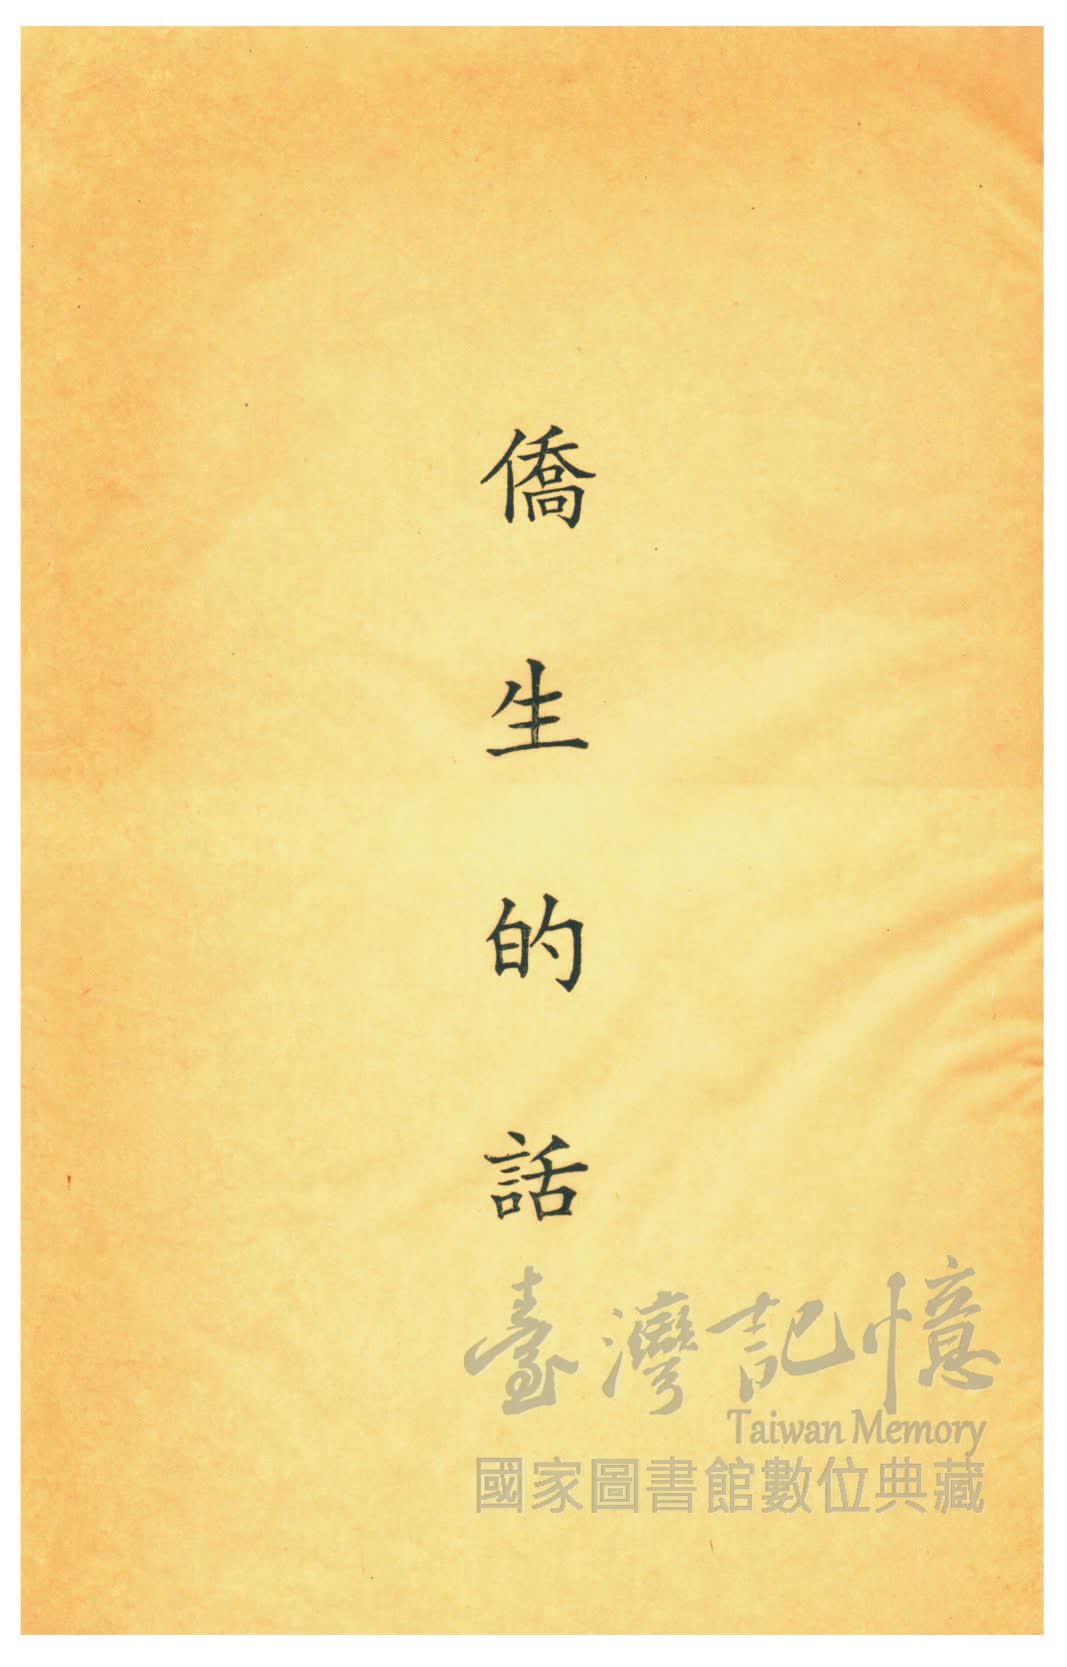 僑生的話
臺灣記憶
Taiwan Memory
國家圖書館數位典藏